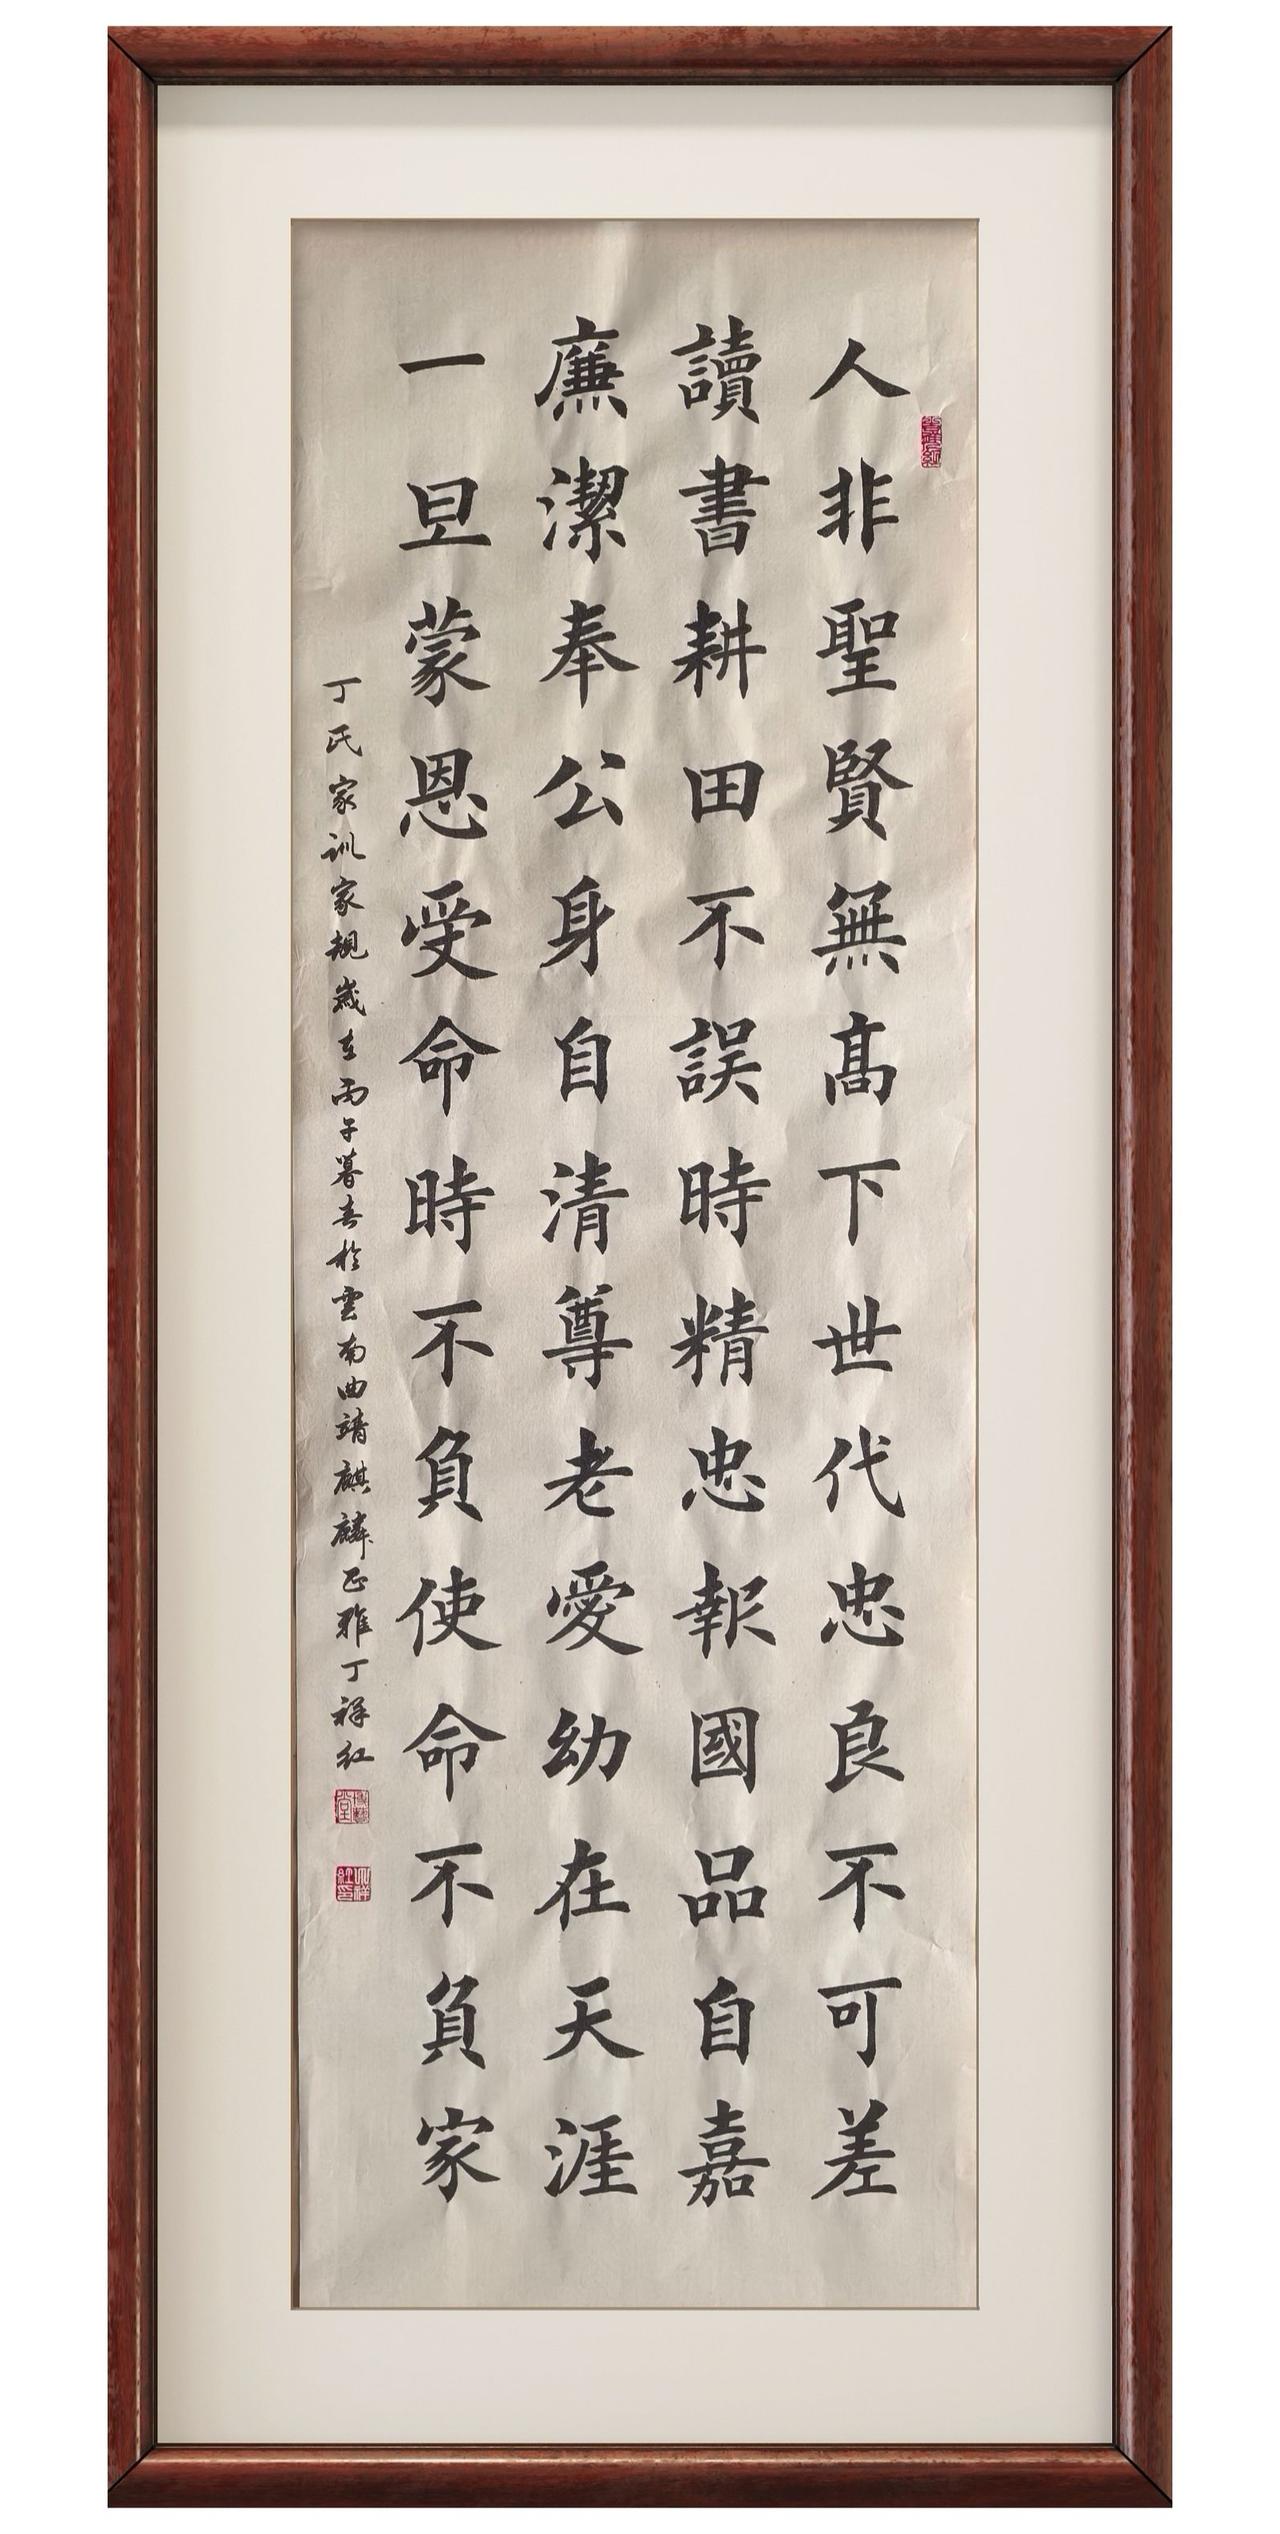 人非聖賢無高下世代忠良不可差
讀書耕田不誤時精忠報國品自嘉
廉潔奉公身自清尊老愛幼在天涯
一旦蒙恩受命時不負使命不負家
丁氏家训家規歲在丙午暮春於雲南曲靖麒麟正雅丁祥红